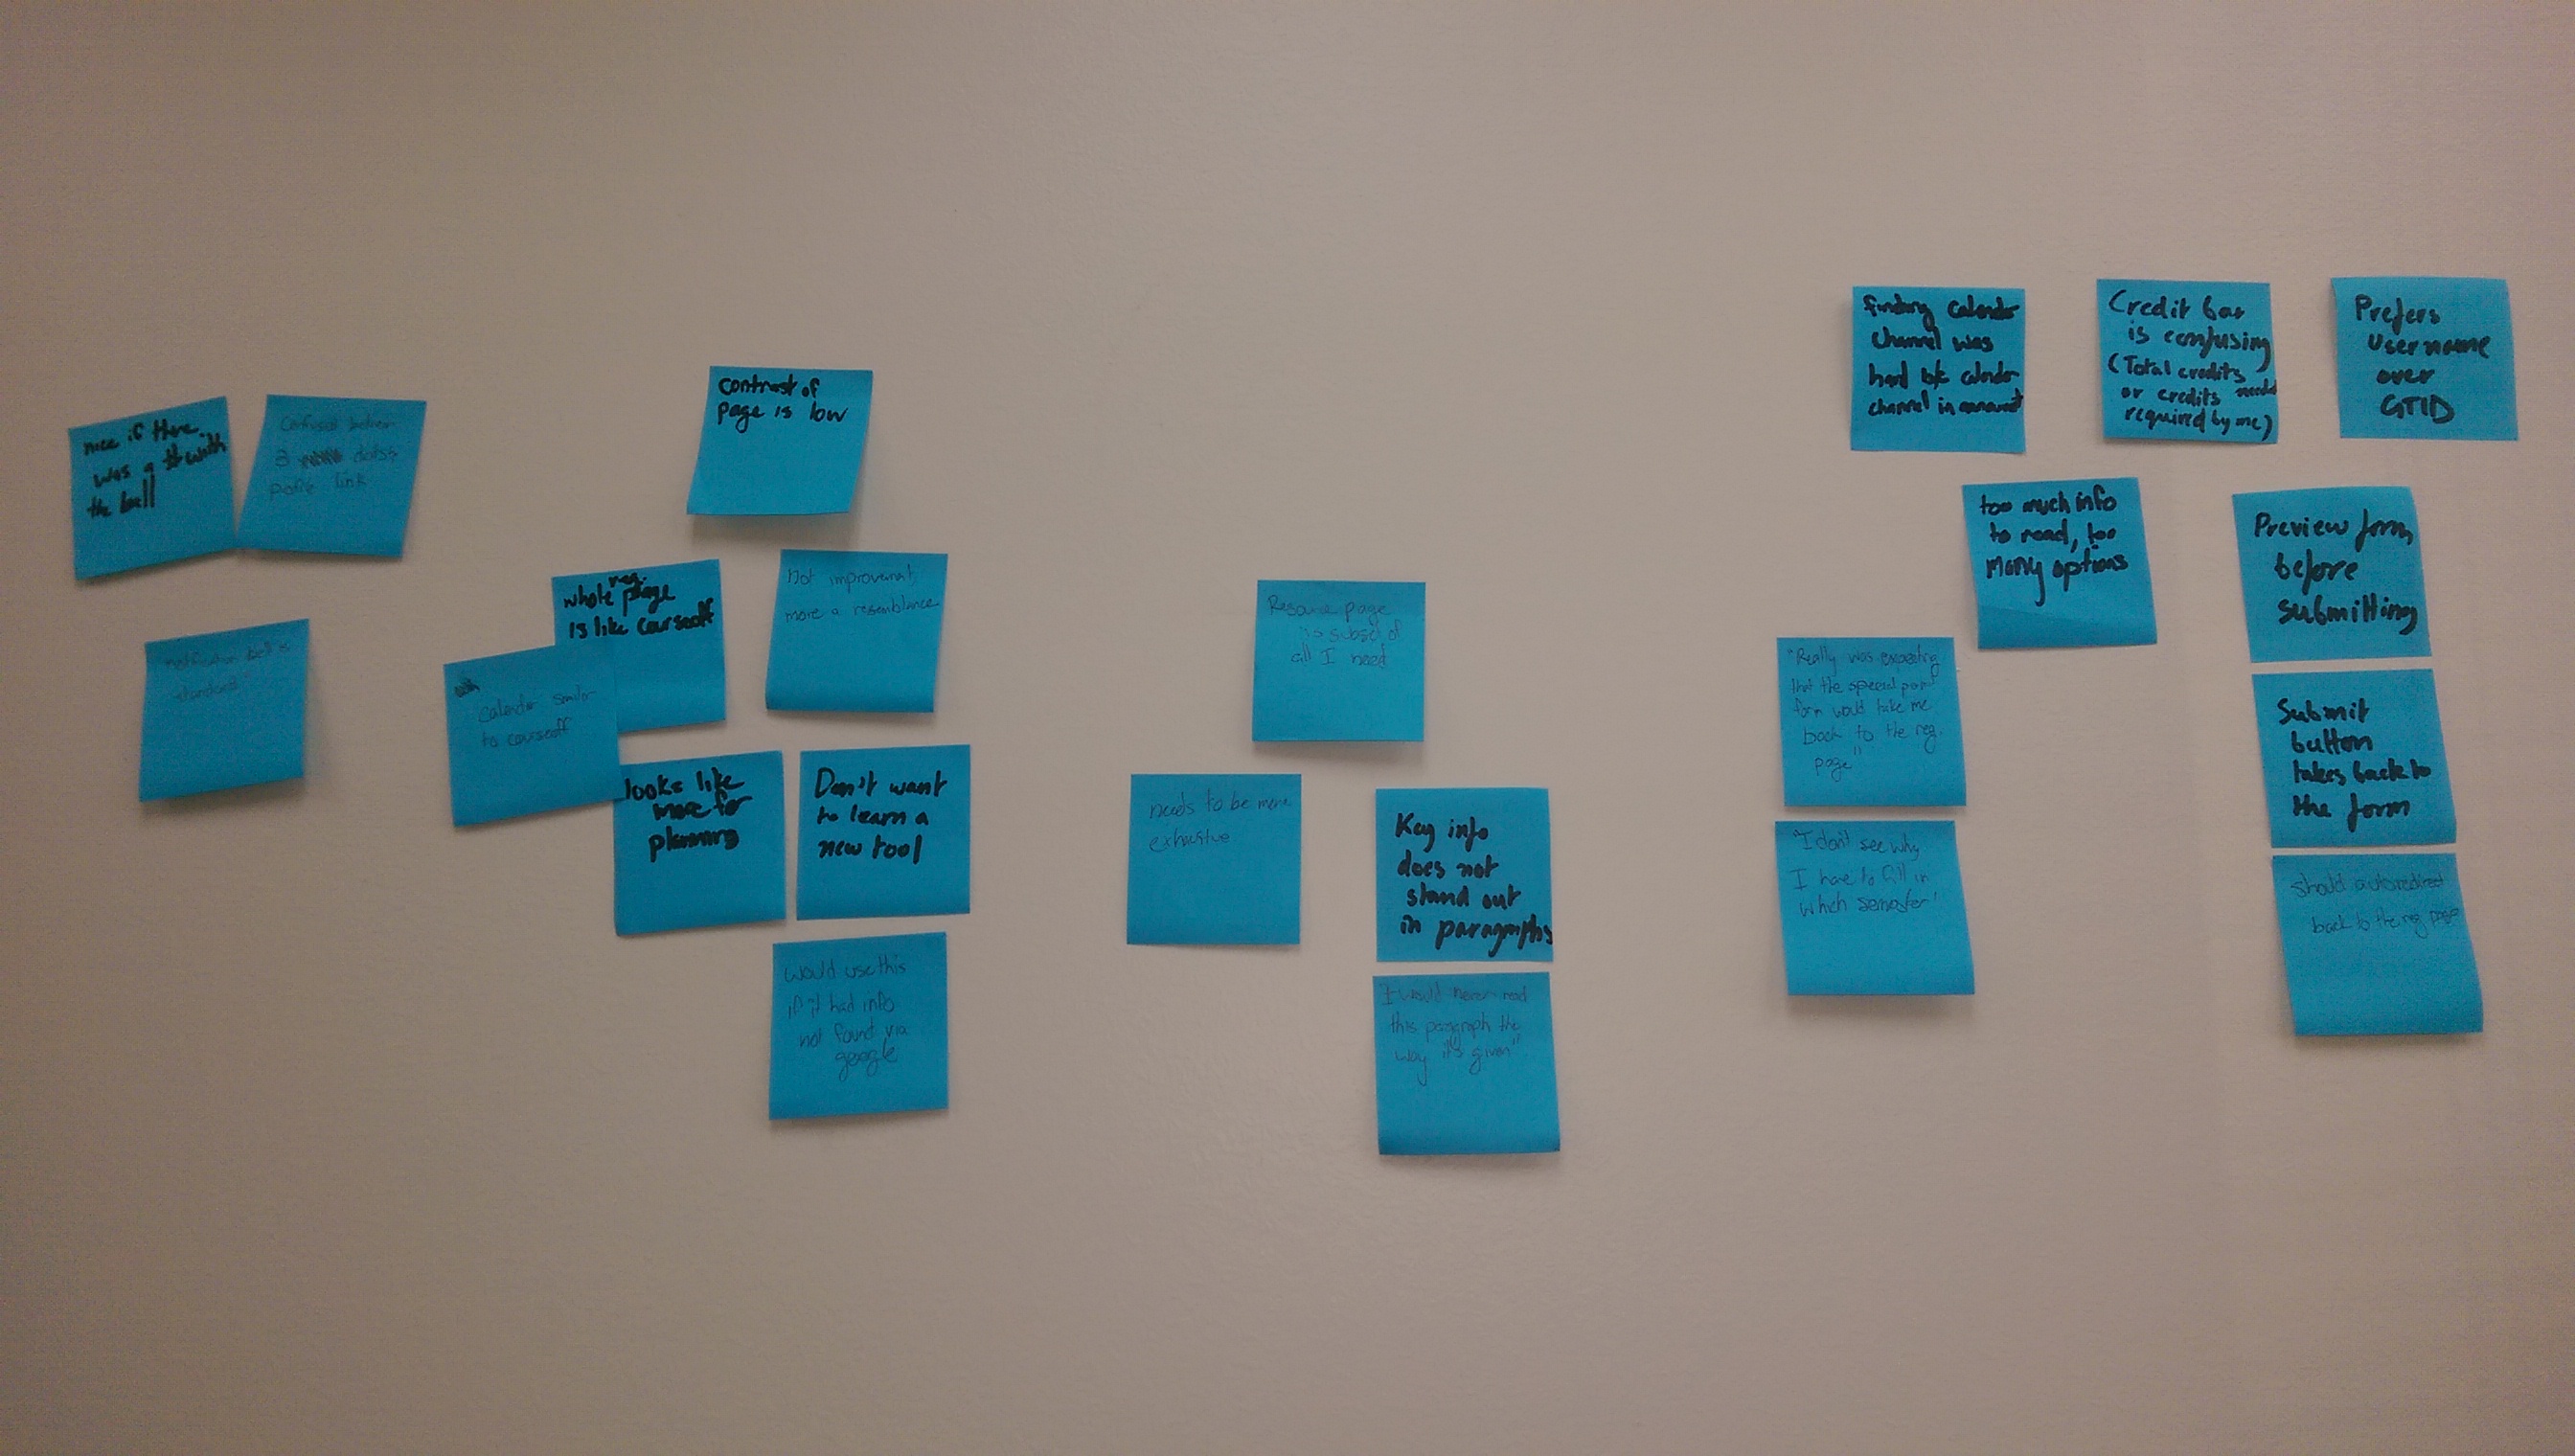 nice if there
was a # with
the bell
Confused between
3 dots &
profile link
"notification bell is
standard"
contrast of
page is low
reg.
whole page
is like coursoff
Not improvement,
more a resemblance
calendar similar
to coursoff
looks like
more for
planning
Don't want
to learn a
new tool
would use this
if it had info
not found via
google
Resource page
is subset of
all I need
needs to be more
exhaustive
Key info
does not
stand out
in paragraphs
"I would never read
this paragraph the
way it's given"
finding calendar
channel was
hard b/c calendar
channel in
Credit bar
is confusing
(Total credits
or credits needed
required by me)
Prefers
username
over
GTID
too much info
to read, too
many options
Preview form
before
submitting
"Really was expecting
that the special permit
form would take me
back to the reg.
page"
Submit
button
takes back to
the form
"I don't see why
I have to fill in
which semester"
should autoredirect
back to the reg page